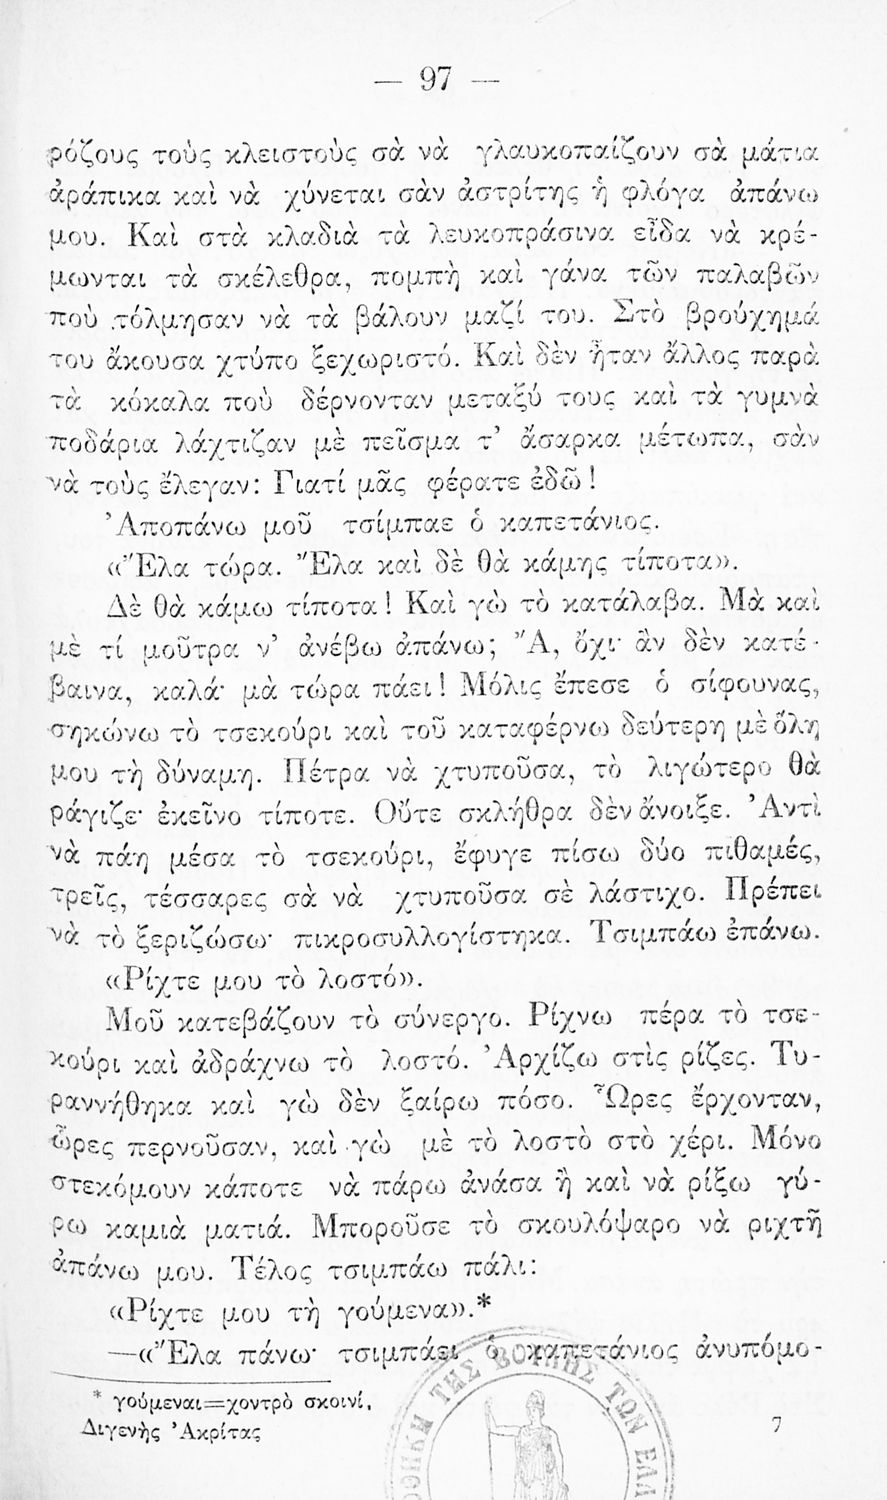 — 97 —
ρόζους τοὺς κλειστοὺς σὰ νὰ γλαυκοπαίζουν σὰ μάτια
ἀράπικα καὶ νὰ χύνεται σὰν ἀστρίτης ἡ φλόγα ἀπάνω
μου. Καὶ στὰ κλαδιὰ τὰ λευκοπράσινα εἶδα νὰ κρέ-
μωνται τὰ σκέλεθρα, πομπὴ καὶ γάνα τῶν παλαβῶν
ποὺ τόλμησαν νὰ τὰ βάλουν μαζί του. Στὸ βρούχημά
του ἄκουσα χτύπο ξεχωριστό. Καὶ δὲν ἦταν ἄλλος παρὰ
τὰ κόκαλα ποὺ δέρνονταν μεταξύ τους καὶ τὰ γυμνὰ
ποδάρια λάχτιζαν μὲ πεῖσμα τ’ ἄσαρκα μέτωπα, σὰν
νὰ τοὺς ἔλεγαν: Γιατί μᾶς φέρατε ἐδῶ!
Ἀποπάνω μοῦ τσίμπαε ὁ καπετάνιος.
«Ἔλα τώρα. Ἔλα καὶ δὲ θὰ κάμης τίποτα».
Δὲ θὰ κάμω τίποτα! Καὶ γὼ τὸ κατάλαβα. Μὰ καὶ
μὲ τί μοῦτρα ν’ ἀνέβω ἀπάνω; Ἄ, ὄχι· ἂν δὲν κατέ-
βαινα, καλά· μὰ τώρα πάει! Μόλις ἔπεσε ὁ σίφουνας,
σηκώνω τὸ τσεκούρι καὶ τοῦ καταφέρνω δεύτερη μὲ ὅλη
μου τὴ δύναμη. Πέτρα νὰ χτυποῦσα, τὸ λιγώτερο θὰ
ράγιζε· ἐκεῖνο τίποτε. Οὔτε σκλήθρα δὲν ἄνοιξε. Ἀντὶ
νὰ πάη μέσα τὸ τσεκούρι, ἔφυγε πίσω δύο πιθαμές,
τρεῖς, τέσσαρες σὰ νὰ χτυποῦσα σὲ λάστιχο. Πρέπει
νὰ τὸ ξεριζώσω· πικροσυλλογίστηκα. Τσιμπάω ἐπάνω.
«Ρίχτε μου τὸ λοστό».
Μοῦ κατεβάζουν τὸ σύνεργο. Ρίχνω πέρα τὸ τσε-
κούρι καὶ ἀδράχνω τὸ λοστό. Ἀρχίζω στὶς ρίζες. Τυ-
ραννήθηκα καὶ γὼ δὲν ξαίρω πόσο. Ὧρες ἔρχονταν,
ὧρες περνοῦσαν, καὶ γὼ μὲ τὸ λοστὸ στὸ χέρι. Μόνο
στεκόμουν κάποτε νὰ πάρω ἀνάσα ἢ καὶ νὰ ρίξω γύ-
ρω καμιὰ ματιά. Μποροῦσε τὸ σκουλόψαρο νὰ ριχτῆ
ἀπάνω μου. Τέλος τσιμπάω πάλι:
«Ρίχτε μου τὴ γούμενα».*
—«Ἔλα πάνω· τσιμπάει ὁ καπετάνιος ἀνυπόμο-
* γούμεναι=χοντρὸ σκοινί,
Διγενὴς Ἀκρίτας 7
ΟΘΗΚΗ ΤΗΣ ΒΟΥΛΗΣ ΤΩΝ ΕΛΛ